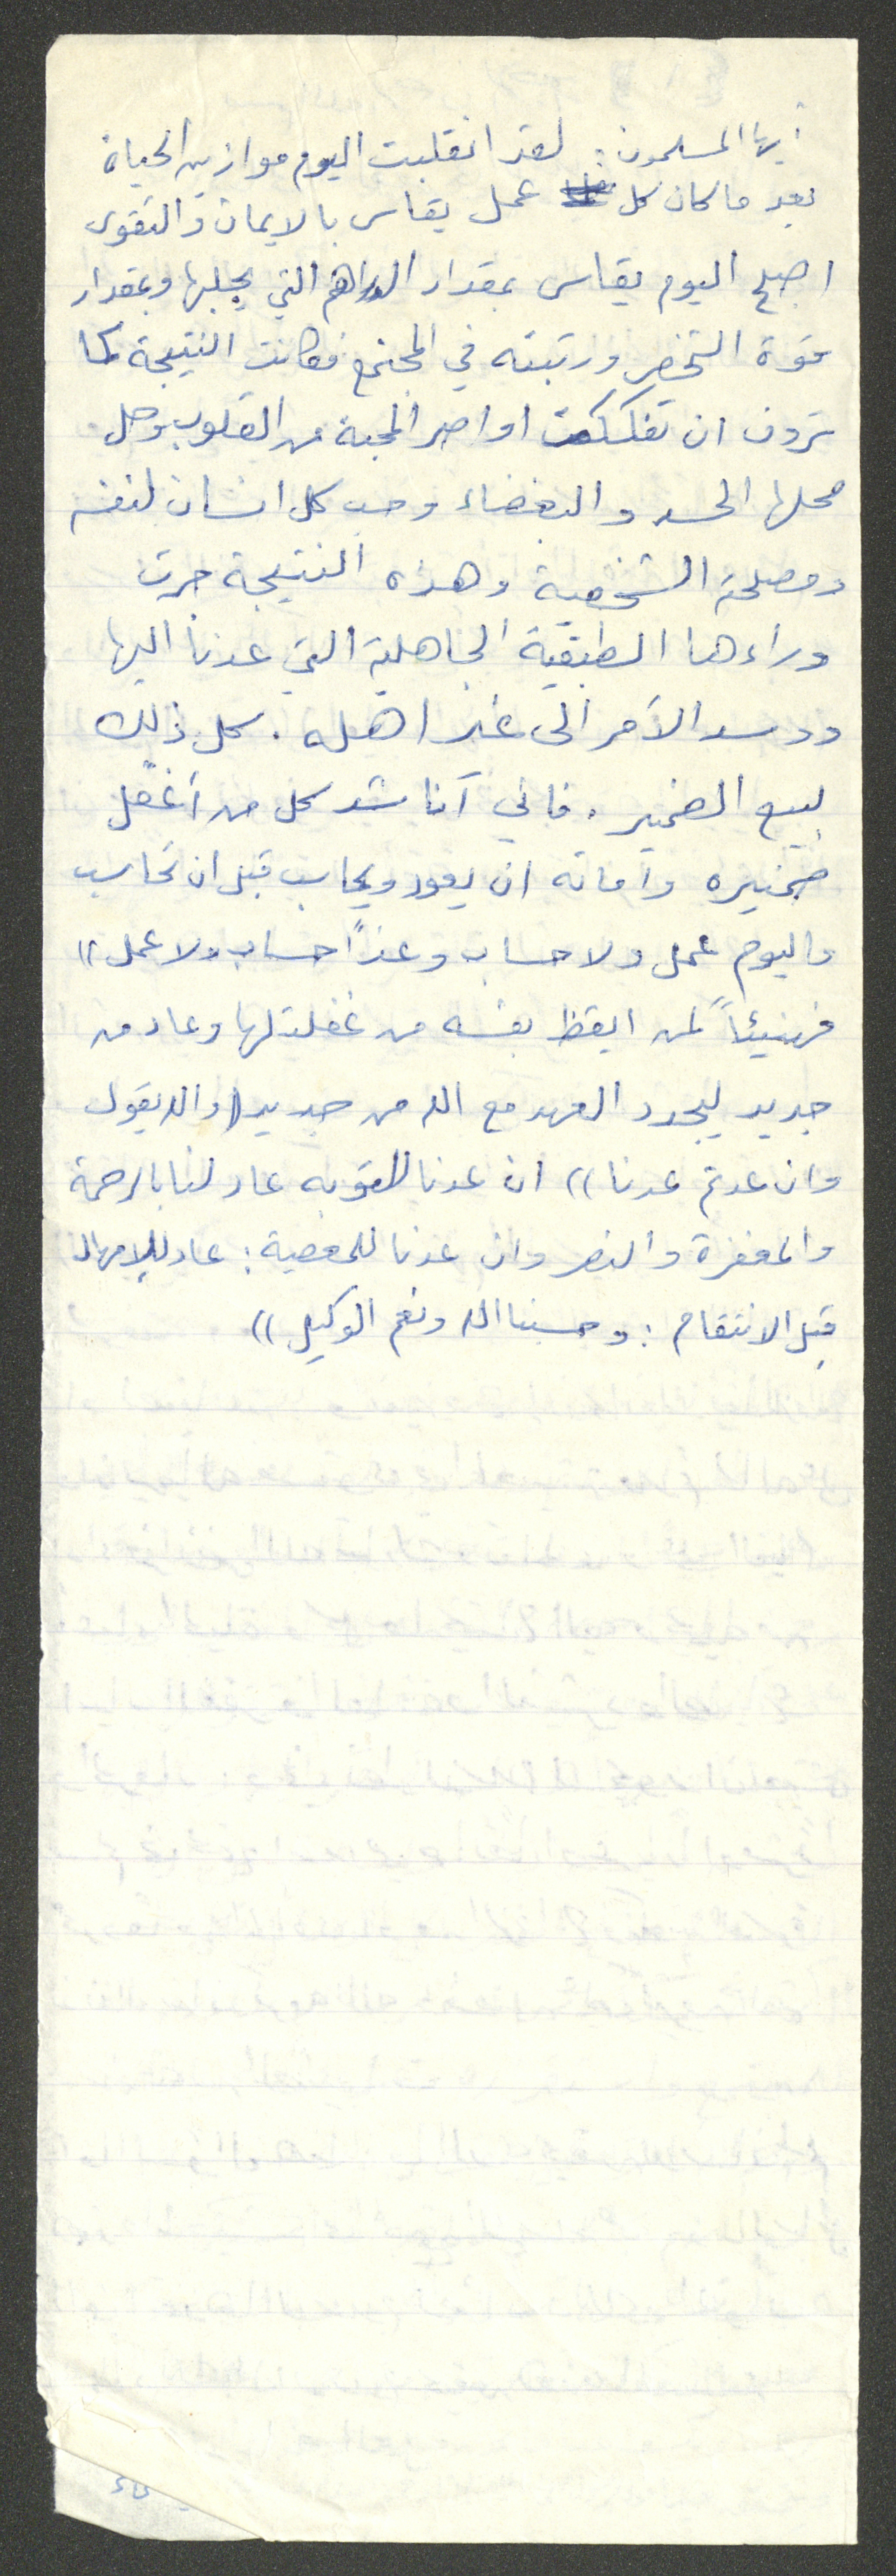 أيها المسلمون: لقد انقلبت اليوم موازين الحياة
بعد ما كان كل عمل يقاس بالايمان والتقوى
اصبح اليوم يقاس بمقدار الدراهم التي يجلبها وبمقدار
قوة الشخص ورتبته في المجتمع فكانت النتيجة كما
ترون ان تفككت اواصر المحبة من القلوب وحل
محلها الحسد والبغضاء وحب كل انسان لنفسه
ومصلحته الشخصية وهذه النتيجة جرت
وراءها الطبقية الجاهلية التي عدنا اليها
ووسد الأمر الى غير اهله. كل ذلك
لبيع الضمير. فاني أناشد كل من أغفل
ضميره وأماته ان يعود ويحاسب قبل ان يحاسب
واليوم عمل ولا حساب وغداً حساب ولا عمل))
فهنيئاً لمن ايقظ نفسه من غفلتها وعاد من
جديد ليجدد العهد مع الله من جديد ((والله يقول
وان عدتم عدنا)) ان عدنا للتوبه عاد لنا بالرحمة
والمغفرة والنصر وان عدنا للمعصية: عاد للامهال
قبل الانتقام: وحسبنا الله ونعم الوكيل))